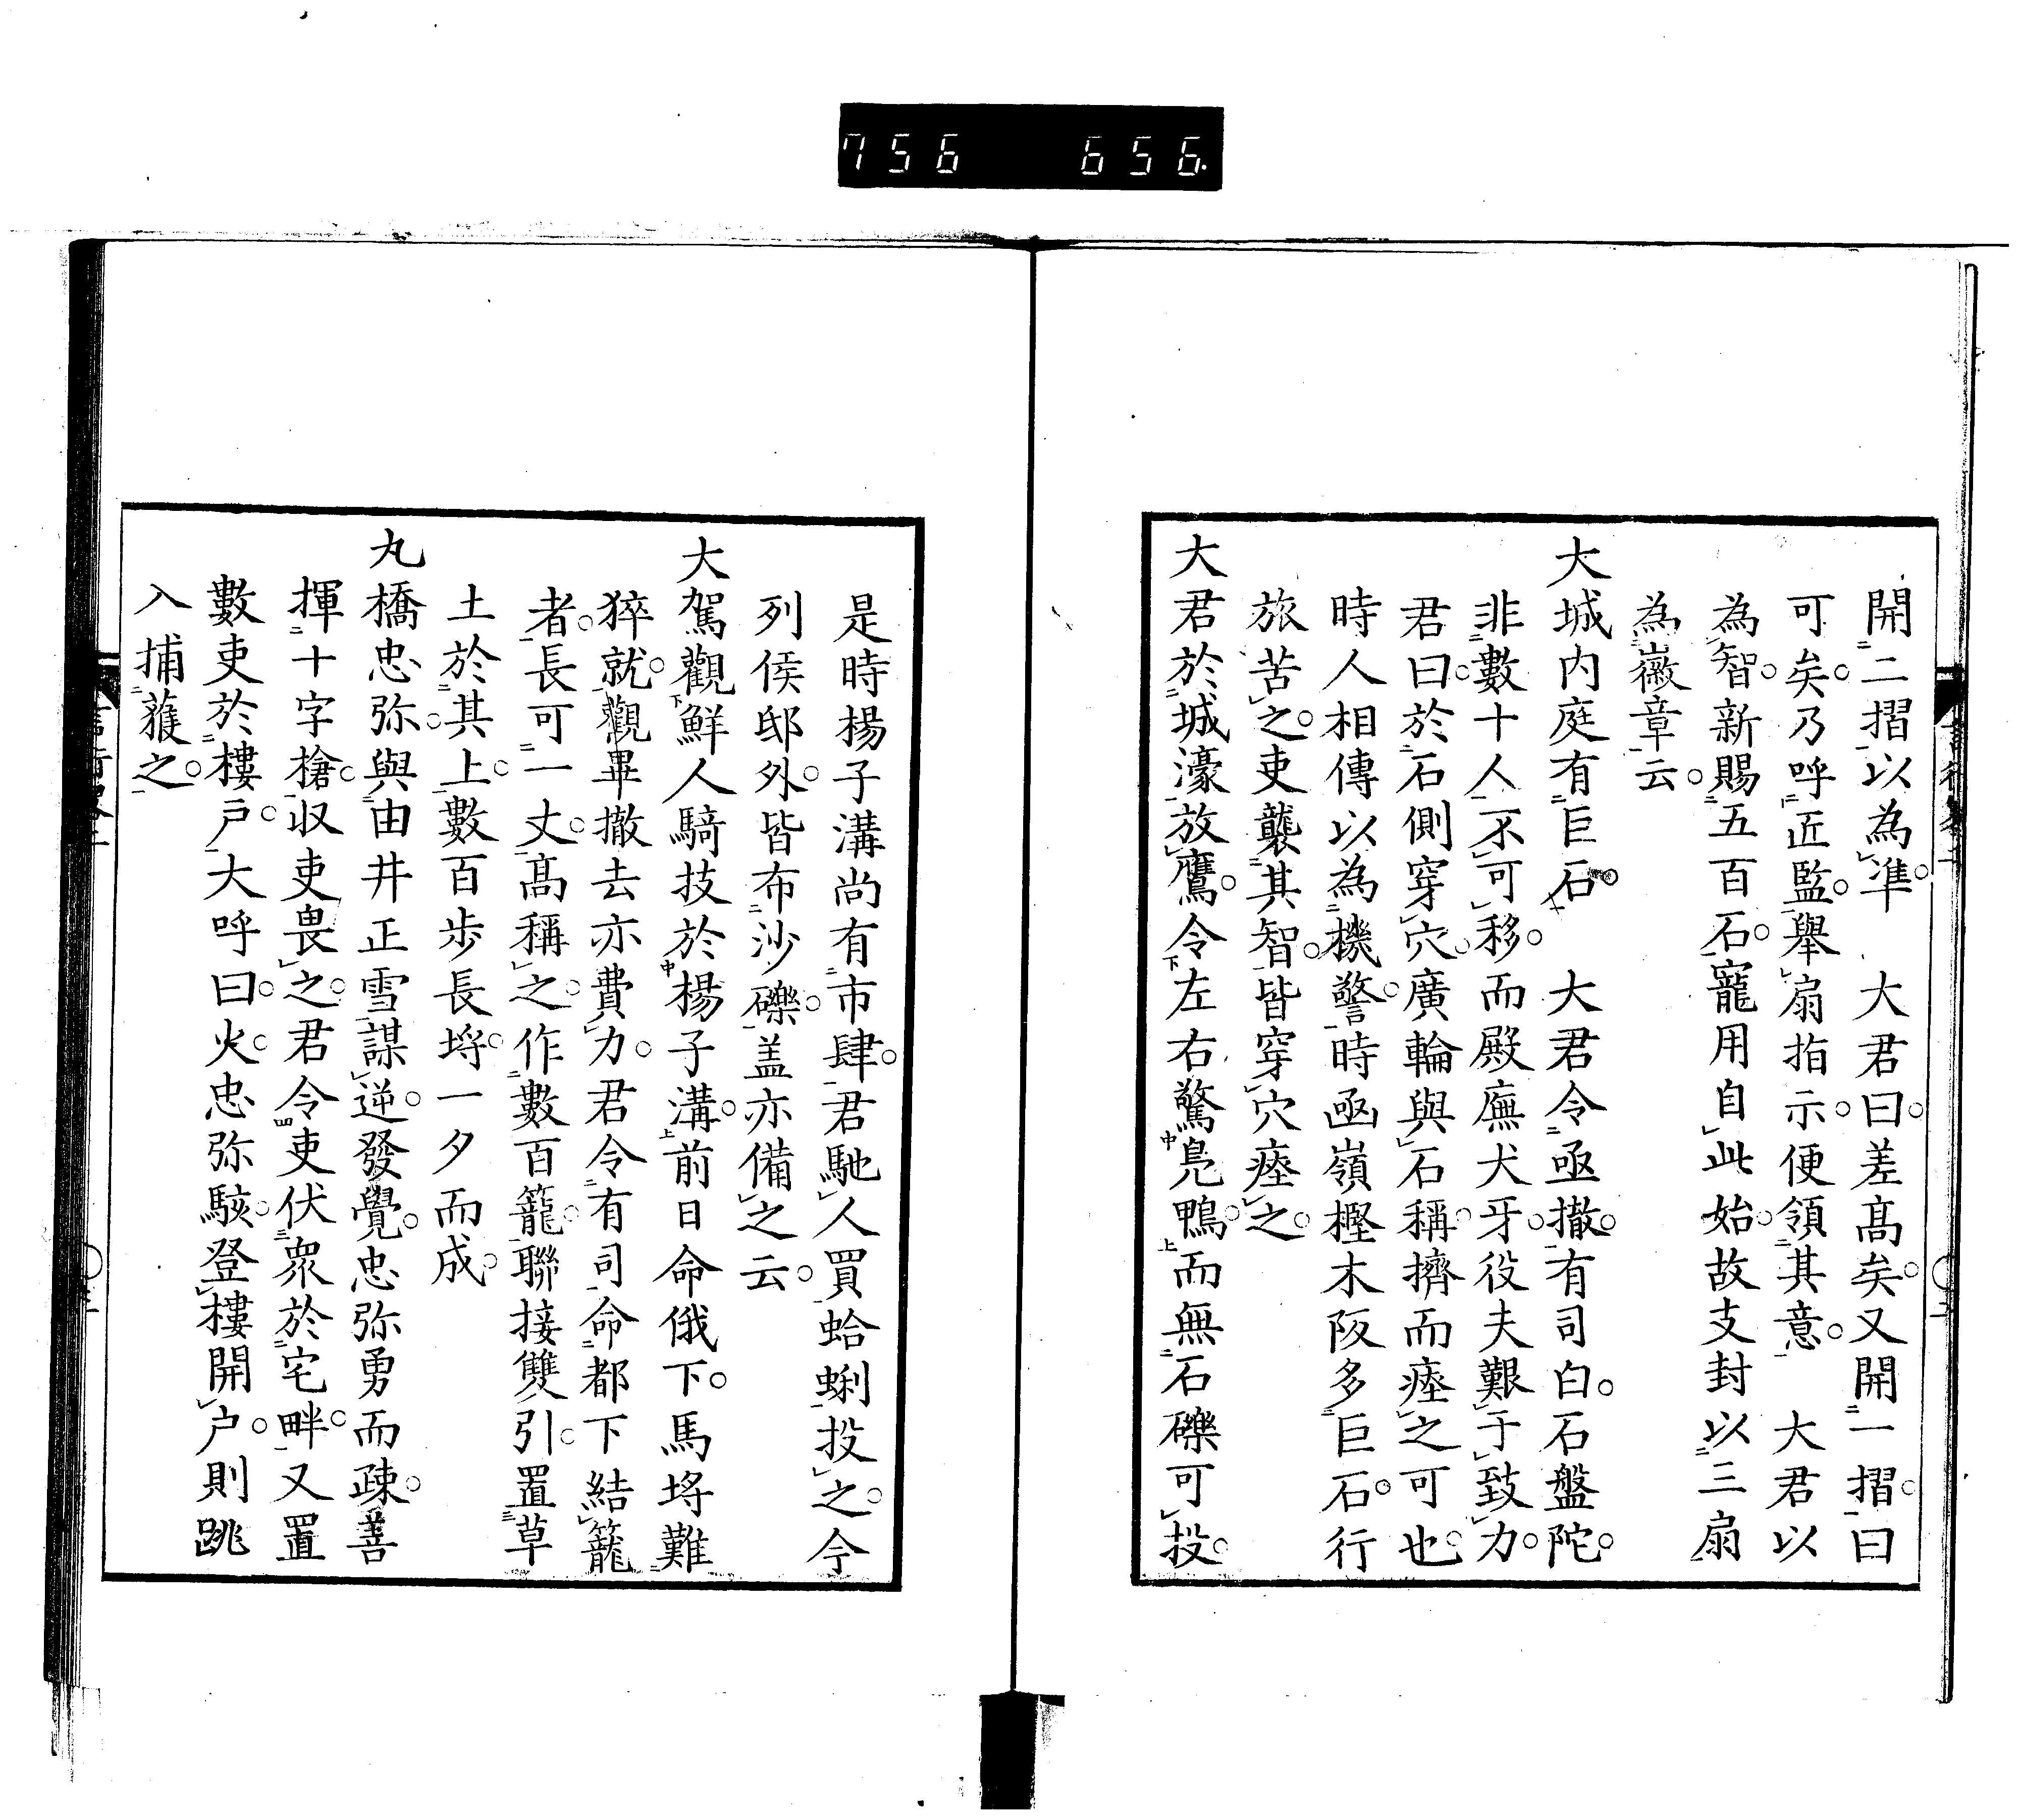 756 656.
開二摺以為準。 大君曰。差高矣。又開一摺。曰
可矣。乃呼匠監。舉扇指示。便領其意。 大君以
為智。新賜五百石。寵用自此始。故支封以三扇
為徽章云。
大城内庭有巨石。 大君令亟撤。有司白。石盤陀。
非數十人不可移。而殿廡犬牙。役夫艱于致力。
君曰。於石側穿穴。廣輪與石稱。擠而瘞之可也。
時人相傳以為機警。時函嶺樫木阪多巨石。行
旅苦之。吏襲其智。皆穿穴瘞之。
大君於城濠放鷹。令左右驚鳧鴨。而無石礫可投。
是時楊子溝尚有市肆。君馳人買蛤蜊投之。今
列侯邸外。皆布沙礫。盖亦備之云。
大駕觀鮮人騎技於楊子溝。前日命俄下。馬埒難
猝就。觀畢撤去亦費力。君令有司命都下結籠
者。長可一丈。高稱之。作數百籠。聯接雙引。置草
土於其上。數百歩長埒。一夕而成。
丸橋忠弥。與由井正雪謀逆發覺。忠弥勇而疎。善
揮十字槍。収吏畏之。君令吏伏衆於宅畔。又置
數吏於樓戸。大呼曰。火。忠弥駭。登樓開戸。則跳
入捕獲之。